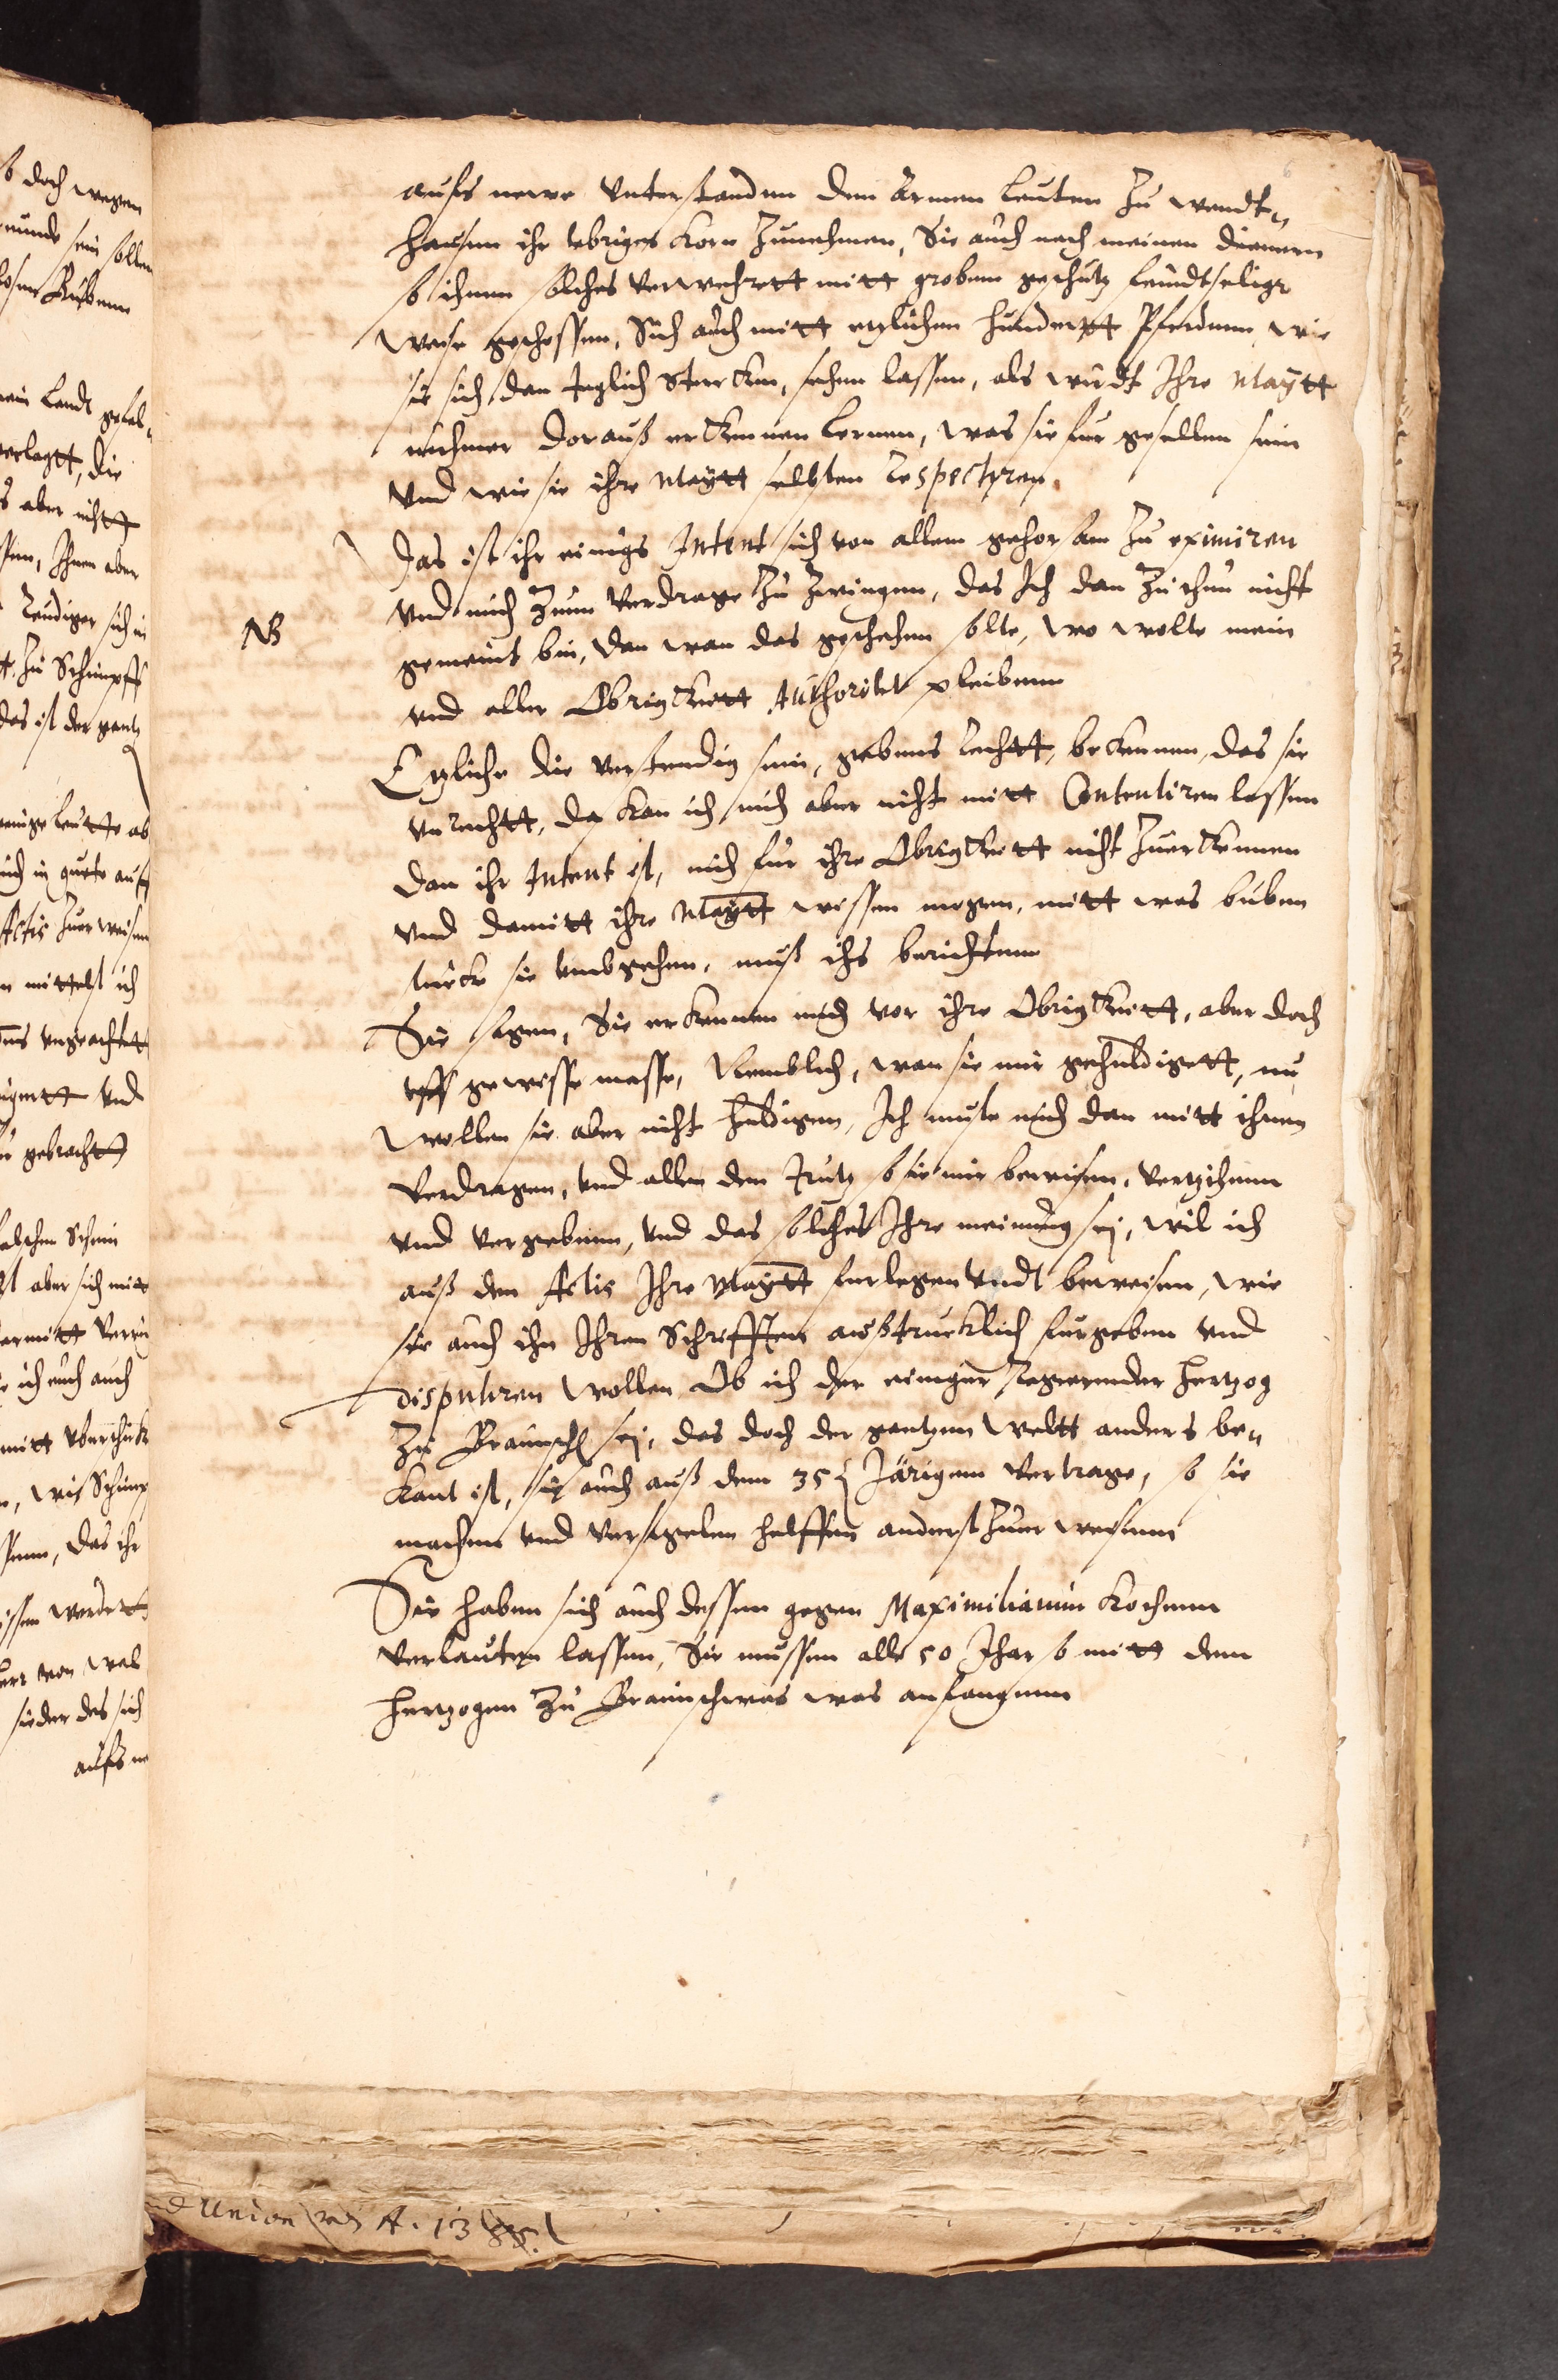 aufs newe unterstanden den Armen Leuten zu wendt„
hausen ihr ubriges Korn zunehmen, Sie auch nach meinen dienern
so ihnen solches verwehrett mitt grobem geschutz feindtselige
weise geschossen, Sich auch mitt etzlichen hundertt Pferdenn, wie
sie sich dan teglich stercken, sehen lassen, als wirdt Ihre Maytt
nuhmer dorauß erkennen lernen, was sie fur gesellen sein
und wie sie ihre Maytt selbsten respectyren.
Das ist ihr einigs Intent sich von allem gehorsam zu eximiren
NB
und mich zum verdrage zu zwingen, das Ich dan zu thun nicht
gemeint bin, dan wan das geschehen solte, wo wolte mein
und aller Obrigkeitt Authoritet pleibenn
Etzliche die verstendig sein, gebens Rechtt, bekennen, das sie
unrechtt, da kan ich mich aber nicht mitt Contentiren lassen
dan ihr Intent ist, mich fur ihre Obrigkeitt nicht zuerkennen
und damitt ihre Maytt wissen mogen, mitt was buben
stucke sie umbgehen, muß ichs berichtenn
Sie sagen, Sie erkennen mich vor ihre Obrigkeitt, aber doch
uff gewisse masse, Nemblich, wan sie mir gehuldigett, nu
wollen sie aber nicht huldigen, Ich muste mich dan mitt ihnen
verdragen, und allen den trutz so sie mir beweisen, vertzihenn
und vergebenn, und das solches Ihre meinung sej, wil ich
auß den Actis Ihre Maytt furlegen undt beweisen, wie
sie auch ihn Ihren Schrifften außtrucklich furgeben und
disputiren wollen Ob ich der einiger Regierender Hertzog
zu Braunschl sej, das doch der gantzen Weltt anders be„
kant ist, sie auch auß dem 35 Järigem vertrage, so sie
machen und versigelen helffen anderst zuerweisenn
Sie haben sich auch dessen gegen Maximilianum Kochenn
verlauten lassen, Sie mussen alle 50 Jhar so mitt dem
Hertzogen zu Braunschweig was anfangenn